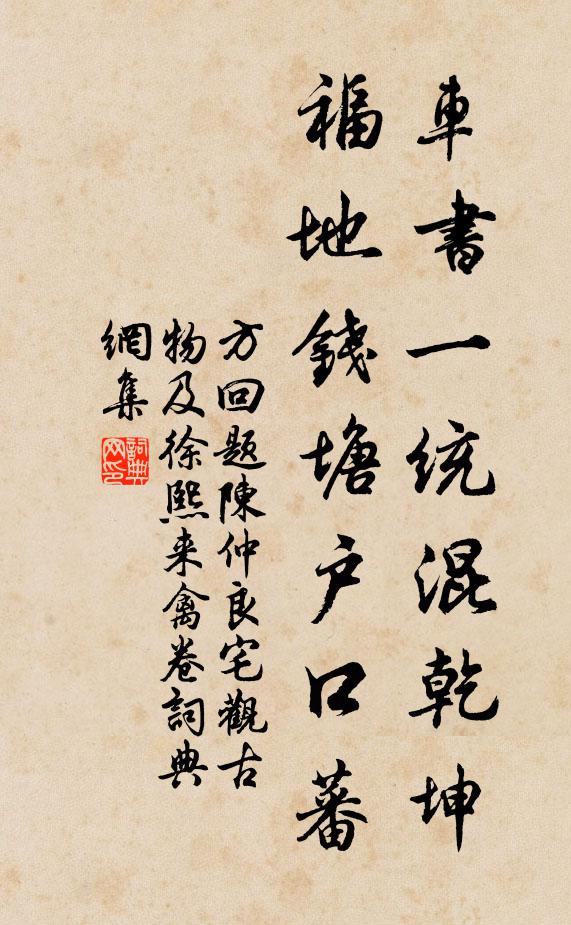 車書一統混乾坤
福地錢塘户口蕃
方回題陳仲良宅觀古
物及徐熙来禽卷詞典
網集
詞典網印